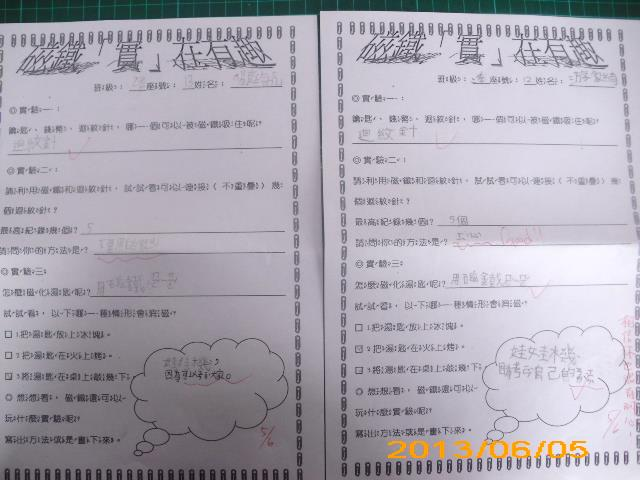 磁鐵「實」在有趣
班級： 座號：13姓名：
◎實驗一：
鑰匙、錢幣、迴紋針，哪一個可以被磁鐵吸住呢？
迴紋針
◎實驗二：
請利用磁鐵和迴紋針，試試看可以連接（不重疊）幾
個迴紋針？
最高紀錄幾個？5
請問你的方法是？
◎實驗三：
怎麼磁化湯匙呢？
試試看，以下哪一種情形會消磁？
□1.把湯匙放上冰塊。
□2.把湯匙在火上烤。
□3.將湯匙在桌上敲幾下。
◎想想看，磁鐵還可以
玩什麼實驗呢？
寫出方法或是畫下來。
5/6
磁鐵「實」在有趣
班級： 座號：12姓名：
◎實驗一：
鑰匙、錢幣、迴紋針，哪一個可以被磁鐵吸住呢？
迴紋針
◎實驗二：
請利用磁鐵和迴紋針，試試看可以連接（不重疊）幾
個迴紋針？
最高紀錄幾個？5個
請問你的方法是？ Good!!
◎實驗三：
怎麼磁化湯匙呢？
試試看，以下哪一種情形會消磁？
□1.把湯匙放上冰塊。
□2.把湯匙在火上烤。
□3.將湯匙在桌上敲幾下。
◎想想看，磁鐵還可以
玩什麼實驗呢？
寫出方法或是畫下來。
2013/06/05